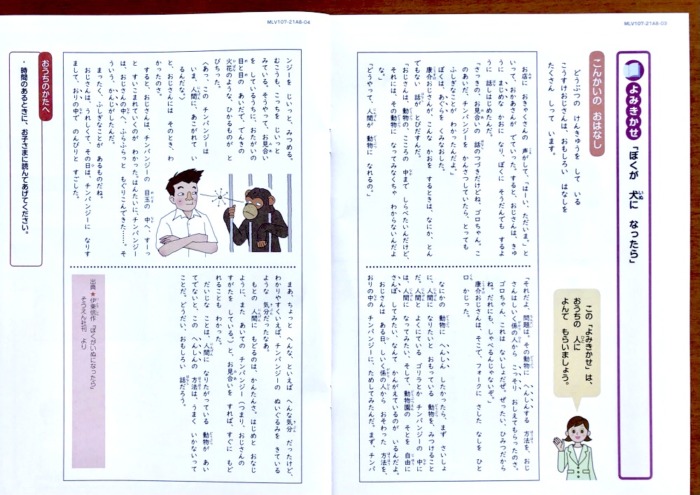 MLV10T-21A8-03
よみきかせ「ぼくが 犬に なったら」
こんかいの おはなし
どうぶつの けんきゅうを して いる
こうすけおじさんは、おもしろい はなしを
たくさん しって います。
この「よみきかせ」は、
おうちの 人に
よんで もらいましょう。
お店に おきゃくさんの 声がして、「はーい、ただいま。」と
いって、おかあさんが でていった。すると、おじさんは、きゅ
うに まじめな かおに なり、ぼくに そうだんでも するよ
うに 話しはじめたんだ。
「さっきの、お見合いの 話の つづきだけどね、ゴロちゃん。こ
のあいだ、チンパンジーを かんさつしていたら、とっても
ふしぎなことが わかったんだよ。」
ぼくは、あぐらを くみなおした。
康介おじさんが、こんな かおを するときは、なにか、とん
でもない 話が とびだすんだ。
「おじさんは、動物の、こころの 中まで しらべたいんだけど、
それには、その動物に なってみなくちゃ わからないんだよ
な。」
「どうやって、人間が 動物に なれるの。」
「それだよ、問題は。その動物に へんしんする 方法を、おじ
さんは しいく係の人から こっそり おしえてもらったのさ。
ゴロちゃん、これは ないしょだぜ。ぜったい、ひみつだから
ね。だれにも、しゃべるんじゃないぞ。」
康介おじさんは、そこで、フォークに さした なしを ひと
口 かじった。
なにかの 動物に へんしん したかったら、まず さいしょ
に、人間に なりたいと おもっている 動物を、みつけること
だ。人間と よくにている ゴリラとか チンパンジーの 中に
は、人間に なってみたい、そして、動物園の そとを 自由に
さんぽ してみたい、なんて かんがえているのが いるんだよ。
おじさんは ある日、しいく係の人から おそわった 方法を、
おりの中の チンパンジーに、ためしてみたんだ。まず、チンパ
MLV10T-21A8-04
ンジーを じいっと、みつめる。
むこうも、こっちを じいっと
みている。そうやって、お見合い
を しているうちに、おたがいの
目と目の あいだで、でんきの
火花のような ひかるものが と
びちった。
（あっ、この チンパンジーは
いま、人間に あこがれて い
るんだな。）
と、おじさんには そのとき、わ
かったのさ。
すると、おじさんは、チンパンジーの 目玉の 中へ、すーっ
と すいこまれていくのが わかった。はんたいに、チンパンジー
は、おじさんの中へ、ふらふらっと もぐりこんできた……。そ
ういう、かんじがしたんだ。
まったく、ふしぎなことが あるものだね。
おじさんは、うれしくて、その日は、チンパンジーに なりす
まして、おりの中で、のんびりと すごした。
まあ、ちょっと へんな、といえば へんな気分 だったけど、
わかりやすくいえば、チンパンジーの ぬいぐるみを きている
ような 気分だったな。
もとの 人間に もどるのは、かんたんさ。はじめと おなじ
ように、また あいての チンパンジー（つまり、おじさんの
すがたを している。）と、お見合いを すれば、すぐに もど
れることも わかった。
だいじな ことは、人間に なりたがっている 動物が あい
てでないと、この へんしんの 方法は、うまく いかないって
ことだ。どうだい、おもしろい 話だろう。
出典★伊東信作「ぼくがいぬになったら」
そうえん社刊 より
おうちのかたへ
時間のあるときに、お子さまに読んであげてください。